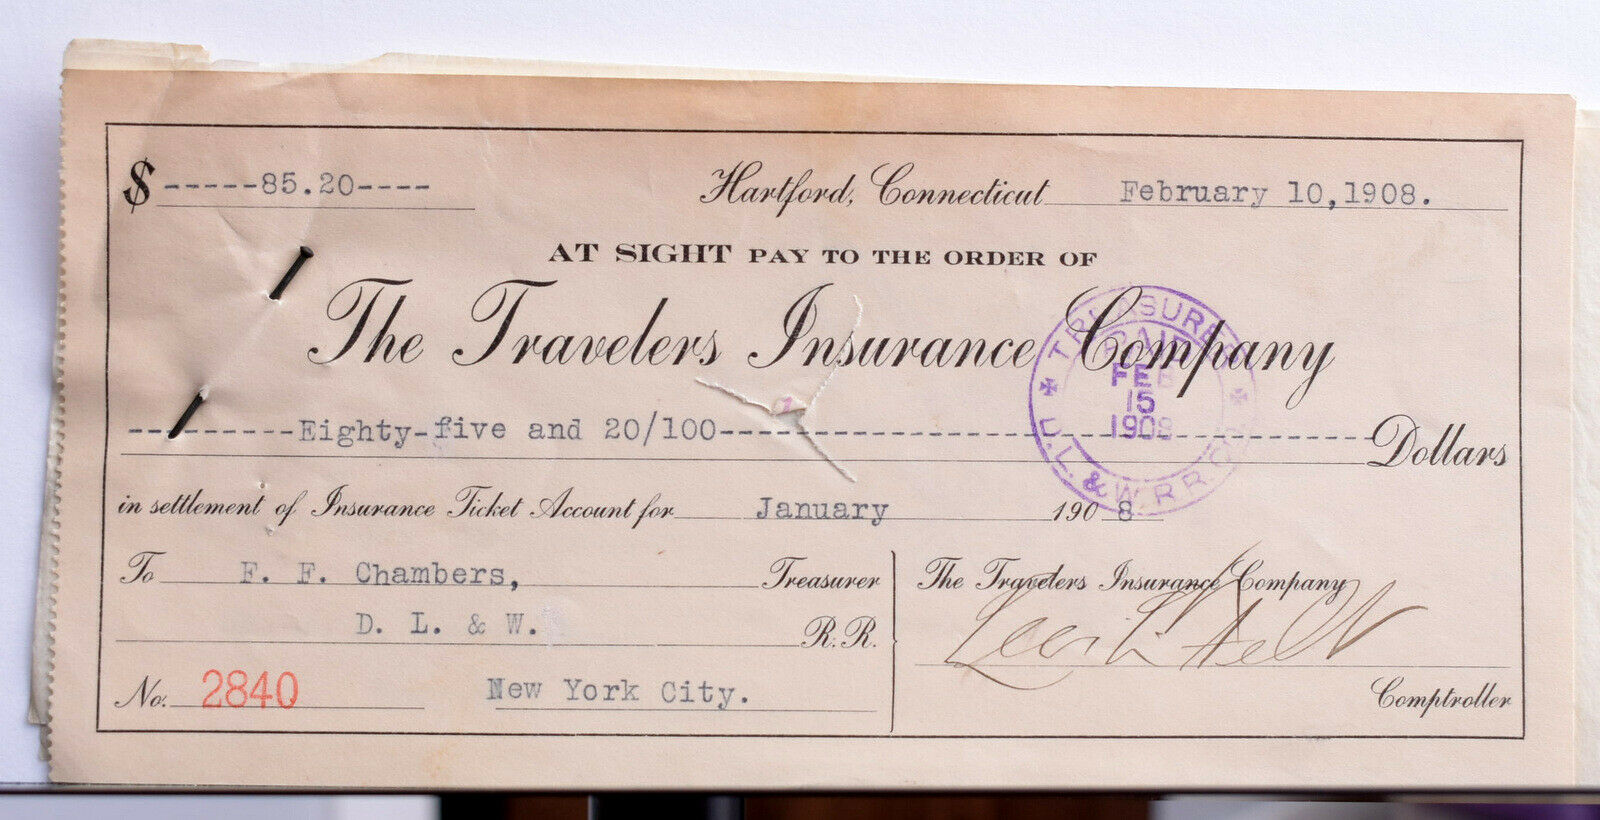 $ -----85.20---- Hartford, Connecticut February 10, 1908.
AT SIGHT PAY TO THE ORDER OF
The Travelers Insurance Company
---------Eighty-five and 20/100---------------------------------------- Dollars
in settlement of Insurance Ticket Account for January 1908
To F. F. Chambers, Treasurer
D. L. & W. R.R.
No. 2840 New York City.
The Travelers Insurance Company
Comptroller
TREASURER
PAID
FEB
15
1908
D. L. & W. R R. CO